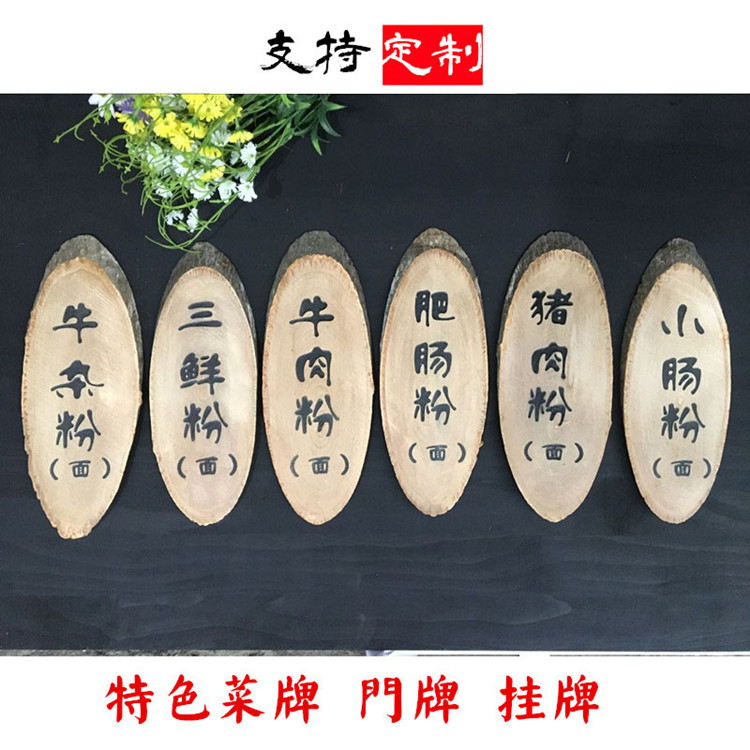 支持定制
牛杂粉(面)
三鲜粉(面)
牛肉粉(面)
肥肠粉(面)
猪肉粉(面)
小肠粉(面)
特色菜牌 門牌 挂牌